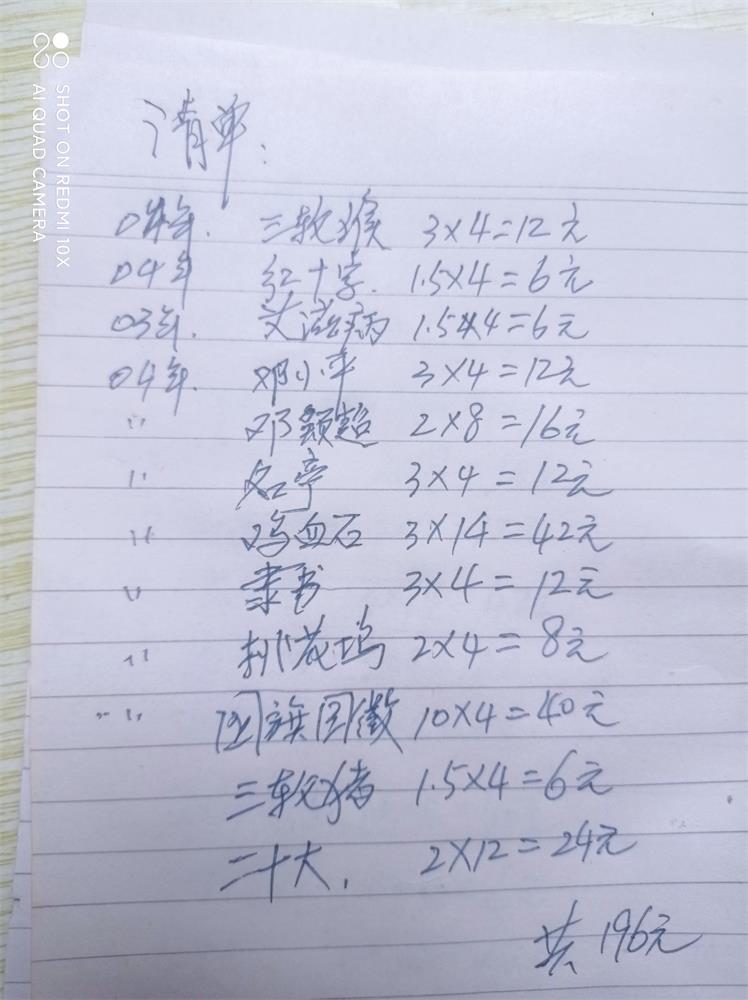 SHOT ON REDMI 10X
AI QUAD CAMERA
清单:
04年. 三轮猴 3×4=12元
04年 红十字. 1.5×4=6元
03年. 艾滋病 1.5×4=6元
04年. 邓小平 3×4=12元
〃 邓颖超 2×8=16元
〃 名亭 3×4=12元
〃 鸡血石 3×14=42元
〃 隶书 3×4=12元
〃 桃花坞 2×4=8元
〃 国旗国徽 10×4=40元
三轮猪 1.5×4=6元
二十大. 2×12=24元
共196元